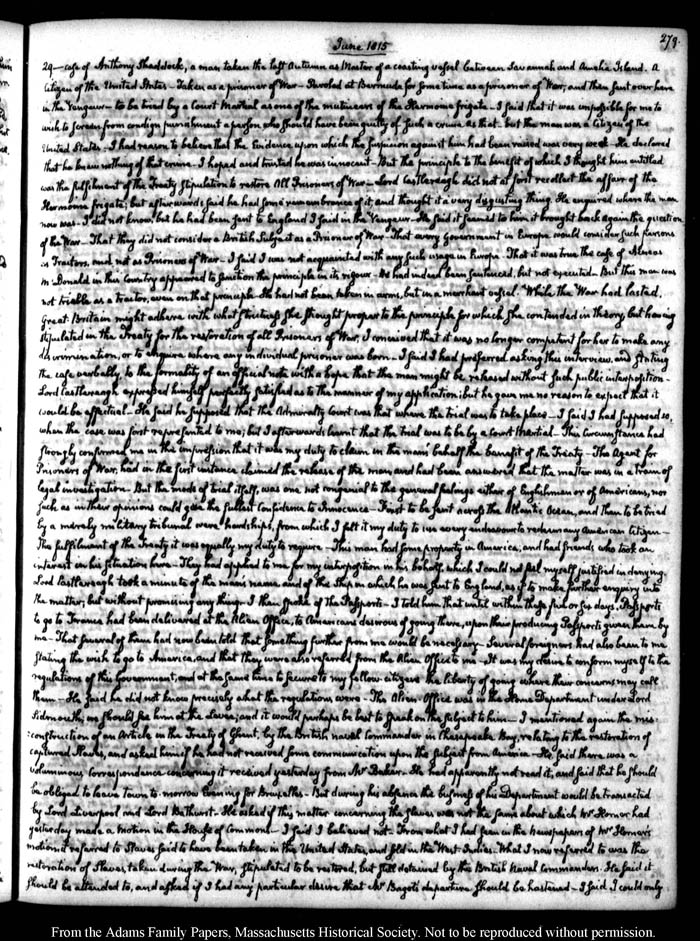 June 1815
279.
29 — case of Anthony Shaddock, a man taken the last Autumn as Master of a coasting vessel between Savannah and Amelia Island. A
Citizen of the United States — Taken as a prisoner of War — Paroled at Bermuda for some time as a prisoner of War, and then sent over here
in the Vengeur — to be tried by a Court Martial as one of the mutineers of the Harmome frigate — I said that it was impossible for me to
wish to screen from condign punishment a person who should have been guilty of such a crime as that. but the man was a Citizen of the
United States — I had reason to believe that the Evidence upon which the suspicion against him had been raised was very weak — He declared
that he knew nothing of that crime. I hoped and trusted he was innocent — But the principle to the benefit of which I thought him entitled
was the fulfilment of the Treaty Stipulation to restore All Prisoners of War — Lord Castlereagh did not at first recollect the affair of the
Harmome frigate; but afterwards said he had some remembrance of it, and thought it a very disgusting thing. He enquired where the man
now was — I did not know, but he had been sent to England I said in the Vengeur — He said it seemed to him it brought back again the question
of the War — That they did not consider a British Subject as a Prisoner of War — That every Government in Europe would consider such persons
as Traitors, and not as Prisoners of War — I said I was not acquainted with any such usage in Europe — That it was true the case of Æneas
McDonald in this Country appeared to sanction the principle in its rigour — He had indeed been sentenced, but not executed — But this man was
not triable as a traitor, even on that principle — He had not been taken in arms, but in a merchant vessel. While the War had lasted,
Great Britain might adhere with what strictness she thought proper to the principle for which she contended in theory, but having
stipulated in the Treaty for the restoration of all Prisoners of War, I conceived that it was no longer competent for her to make any
discrimination, or to enquire where any individual prisoner was born — I said I had preferred asking this interview, and stating
the case verbally, to the formality of an official note, with a hope that the man might be released without such public interposition —
Lord Castlereagh expressed himself perfectly satisfied as to the manner of my application; but he gave me no reason to expect that it
would be effectual — He said he supposed that the Admiralty Court was that where the trial was to take place — I said I had supposed so,
when the case was first represented to me; but I afterwards learnt that the trial was to be by a Court Martial — This circumstance had
strongly confirmed me in the impression that it was my duty to claim in the man's behalf the benefit of the Treaty — The Agent for
Prisoners of War, had in the first instance claimed the release of the man and had been answered that the matter was in a train of
legal investigation — But the mode of trial itself, was one not congenial to the general feelings either of Englishmen or of Americans, nor
such as in their opinions could give the fullest Confidence to Innocence — First to be sent across the Atlantic Ocean, and then to be tried
by a merely military tribunal were hardships, from which I felt it my duty to use every endeavour to redeem any American Citizen —
The fulfilment of the Treaty it was equally my duty to require — This man had some property in America, and had friends who took an
interest in his situation here — They had applied to me for my interposition in his behalf, which I could not feel myself justified in denying.
Lord Castlereagh took a minute of the man's name and of the Ship in which he was sent to England, as if to make further enquiry into
the matter; but without promising any thing — I then spoke of the Passports — I told him that until within these five or six days, Passports
to go to France had been delivered at the Alien Office, to Americans desirous of going there, upon their producing Passports given them by
me — That several of them had now been told that something further from me would be necessary — Several foreigners had also been to me
stating the wish to go to America, and that they were also referred from the Alien Office to me — It was my desire to conform myself to the
regulations of this Government, and at the same time to secure to my fellow-citizens the liberty of going where their concerns may call
them — He said he did not know precisely what the regulations were — The Alien Office was in the Home Department under Lord
Sidmouth; we should see him at the Levee; and it would perhaps be best to speak on the subject to him — I mentioned again the mis-
:construction of an Article in the Treaty of Ghent, by the British naval Commander in Chesapeake Bay, relating to the restoration of
captured Slaves, and asked him if he had not received some communication upon the Subject from America — He said there was a
voluminous correspondence concerning it received yesterday from Mr Baker. He had apparently not read it, and said that he should
be obliged to leave Town to-morrow Evening for Bruxelles — But during his absence the business of his Department would be transacted
by Lord Liverpool and Lord Bathurst — He asked if this matter concerning the slaves was not the same about which Mr Horner had
yesterday made a motion in the House of Commons — I said I believed not. From what I had seen in the Newspapers of Mr Horner's
motion it referred to Slaves said to have been taken in the United States, and sold in the West Indies. What I now referred to was the
restoration of Slaves, taken during the War, stipulated to be restored, but still detained by the British Naval Commanders. He said it
should be attended to, and asked if I had any particular desire that Mr Bagot's departure should be hastened — I said I could only
From the Adams Family Papers, Massachusetts Historical Society. Not to be reproduced without permission.